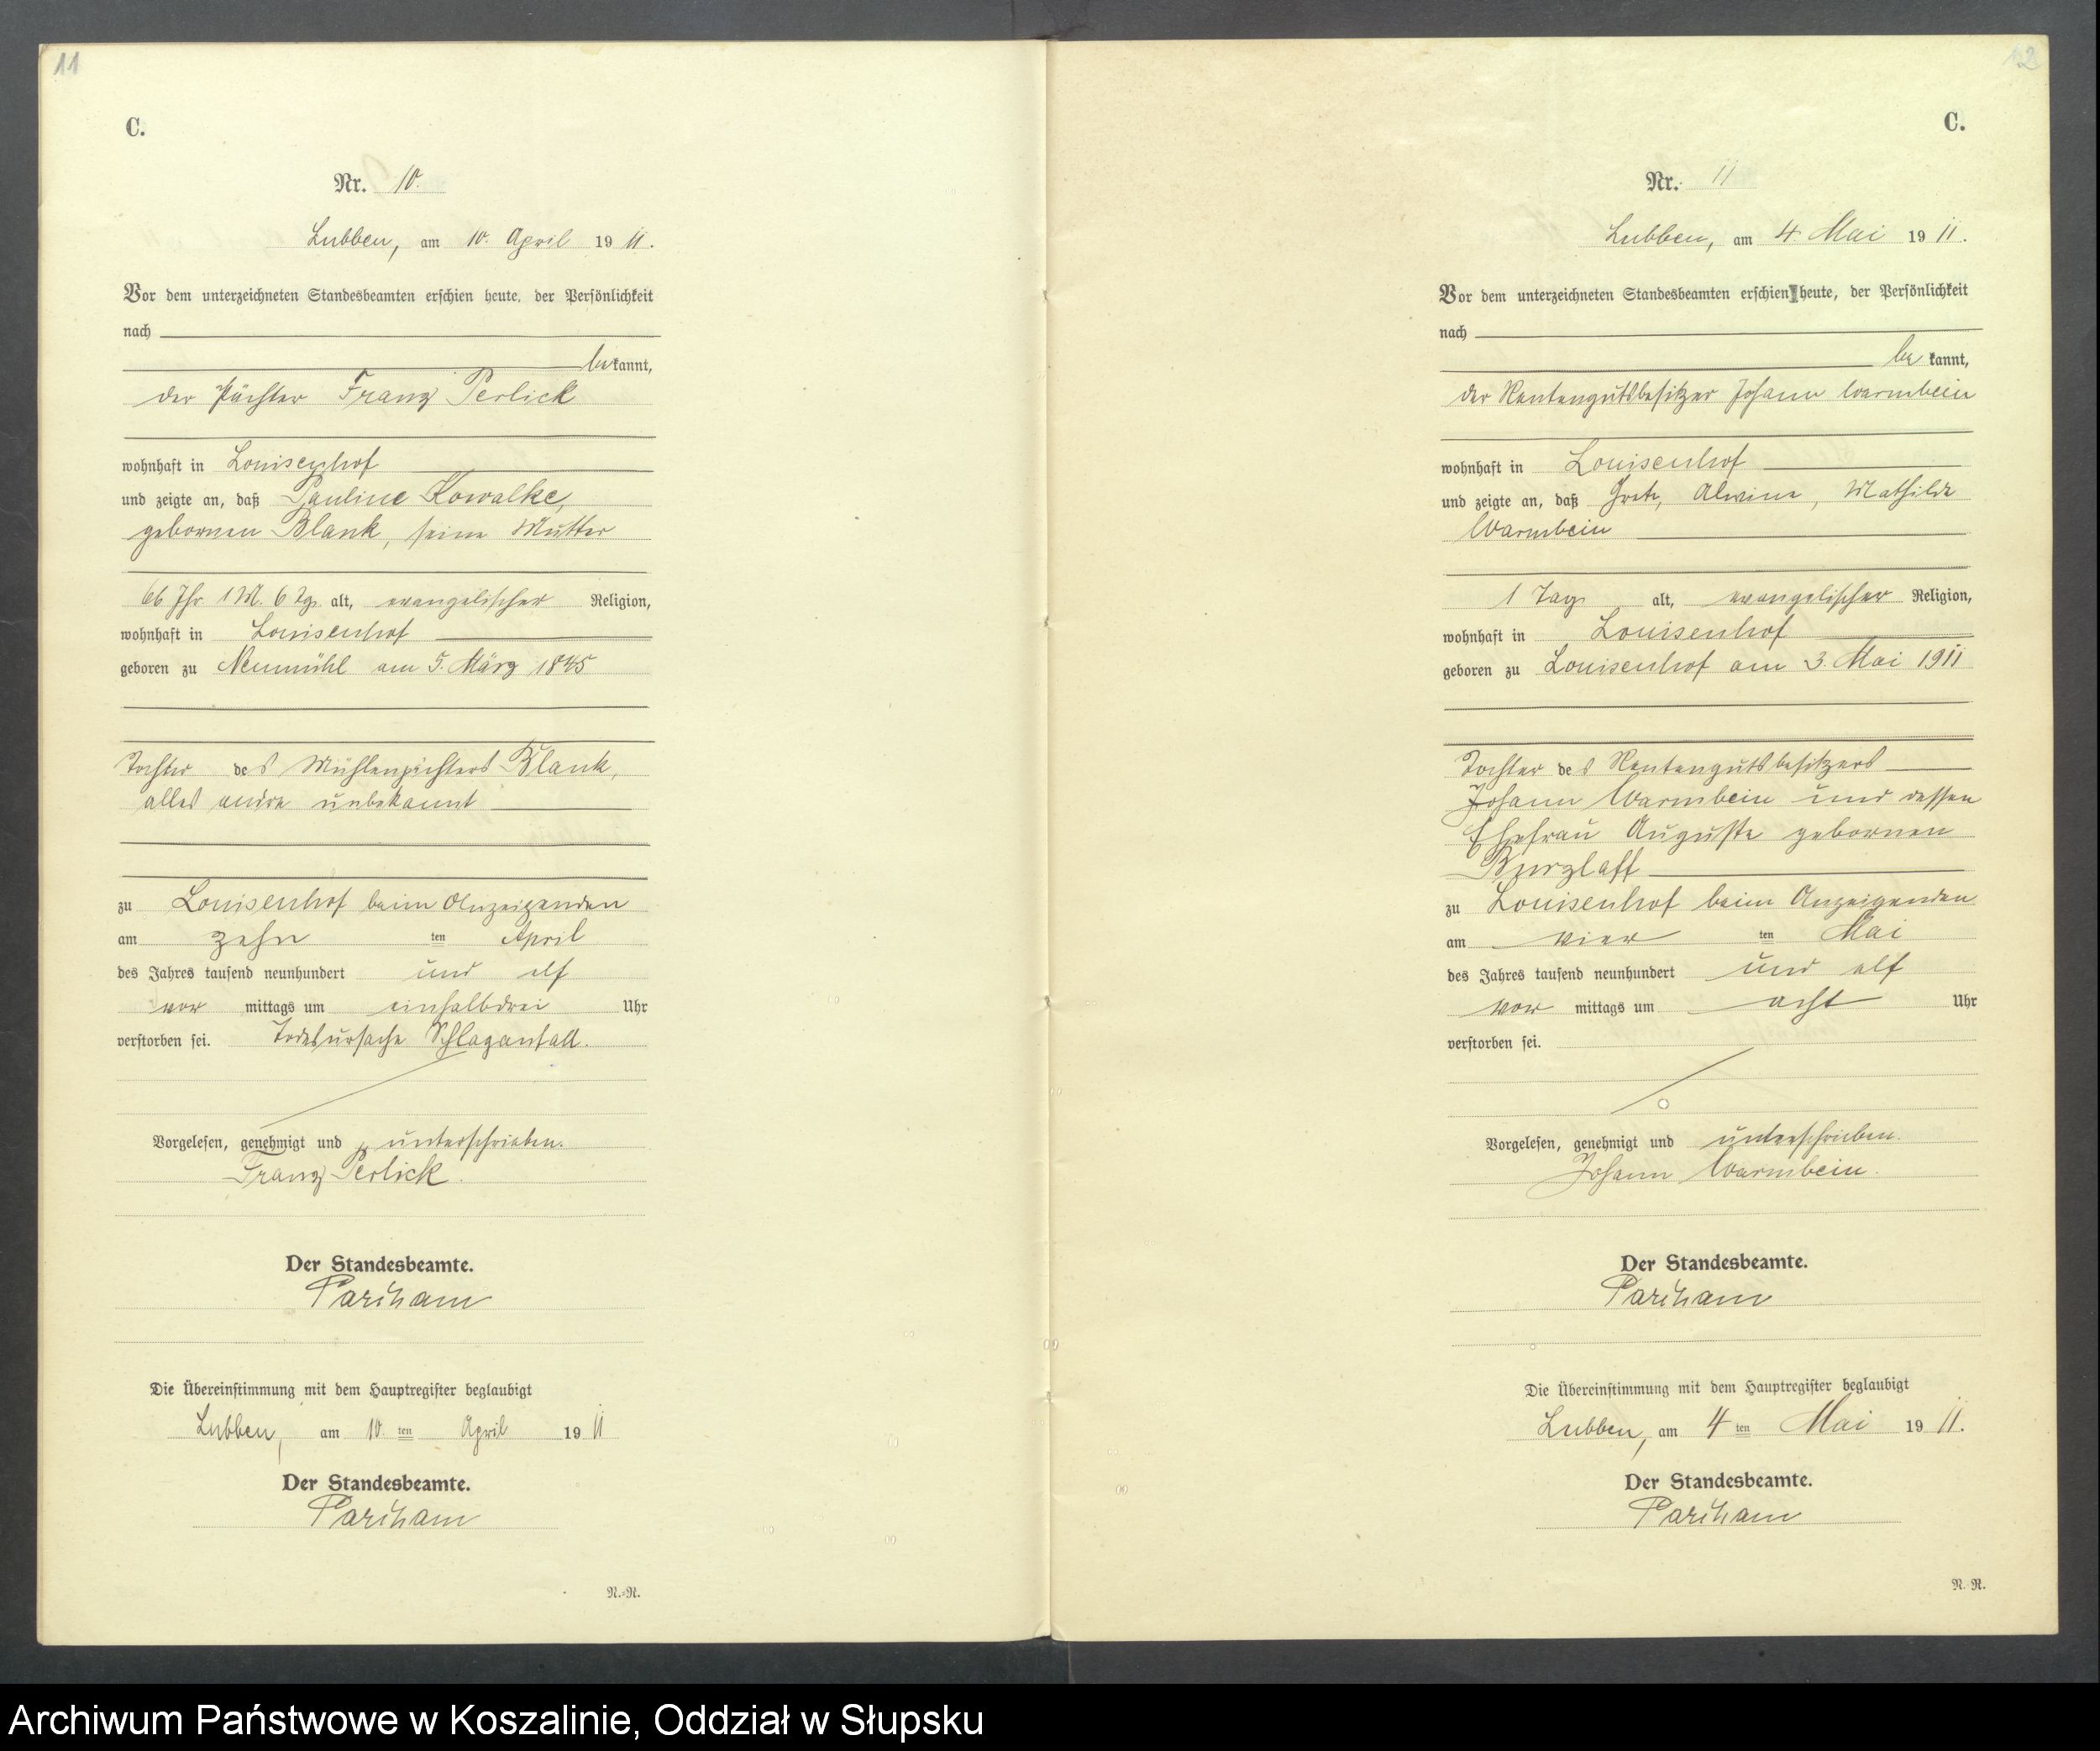 11
C.
Nr. 10.
Lubben, am 10. April 19 11.
Vor dem unterzeichneten Standesbeamten erschien heute, der Persönlichkeit
nach
bekannt,
der Pächter Franz Perlick
wohnhaft in Louisenhof
und zeigte an, daß Pauline Kowalke,
gebornen Blank, seine Mutter
66 Jhr 1 M. 6 Tg. alt, evangelischer Religion,
wohnhaft in Louisenhof
geboren zu Neumühl am 5. März 1845
Tochter des Mühlenpächters Blank,
alles andre unbekannt
zu Louisenhof beim Anzeigenden
am zehn ten April
des Jahres tausend neunhundert und elf
vor mittags um einhalbdrei Uhr
verstorben sei. Todesursache Schlaganfall.
Vorgelesen, genehmigt und unterschrieben.
Franz Perlick.
Der Standesbeamte.
Die Übereinstimmung mit dem Hauptregister beglaubigt
Lubben, am 10. ten April 19 11
Der Standesbeamte.
N.-R.
12
C.
Nr. 11
Lubben, am 4. Mai 19 11.
Vor dem unterzeichneten Standesbeamten erschien heute, der Persönlichkeit
nach
be kannt,
der Rentengutsbesitzer Johann Warmbein
wohnhaft in Louisenhof
und zeigte an, daß Grete, Alwine, Mathilde
Warmbein
1 Tag alt, evangelischer Religion,
wohnhaft in Louisenhof
geboren zu Louisenhof am 3. Mai 1911
Tochter des Rentengutsbesitzers
Johann Warmbein und dessen
Ehefrau Auguste gebornen
Burzlaff
zu Louisenhof beim Anzeigenden
am vier ten Mai
des Jahres tausend neunhundert und elf
vor mittags um acht Uhr
verstorben sei.
Vorgelesen, genehmigt und unterschrieben.
Johann Warmbein.
Der Standesbeamte.
Die Übereinstimmung mit dem Hauptregister beglaubigt
Lubben, am 4 ten Mai 19 11.
Der Standesbeamte.
N. R.
Archiwum Państwowe w Koszalinie, Oddział w Słupsku